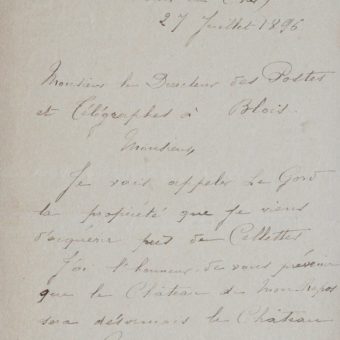 27 Juillet 1896
Monsieur le Directeur des Postes
et Télégraphes à Blois.
Monsieur,
Je vais appeler Le Gord
la propriété que je viens
d'acquérir près de Cellettes
J'ai l'honneur de vous prévenir
que le Château de Mon Repos
sera désormais le Château